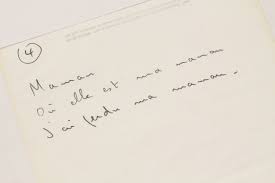 4
Maman
Où elle est ma maman
j'ai perdu ma maman.